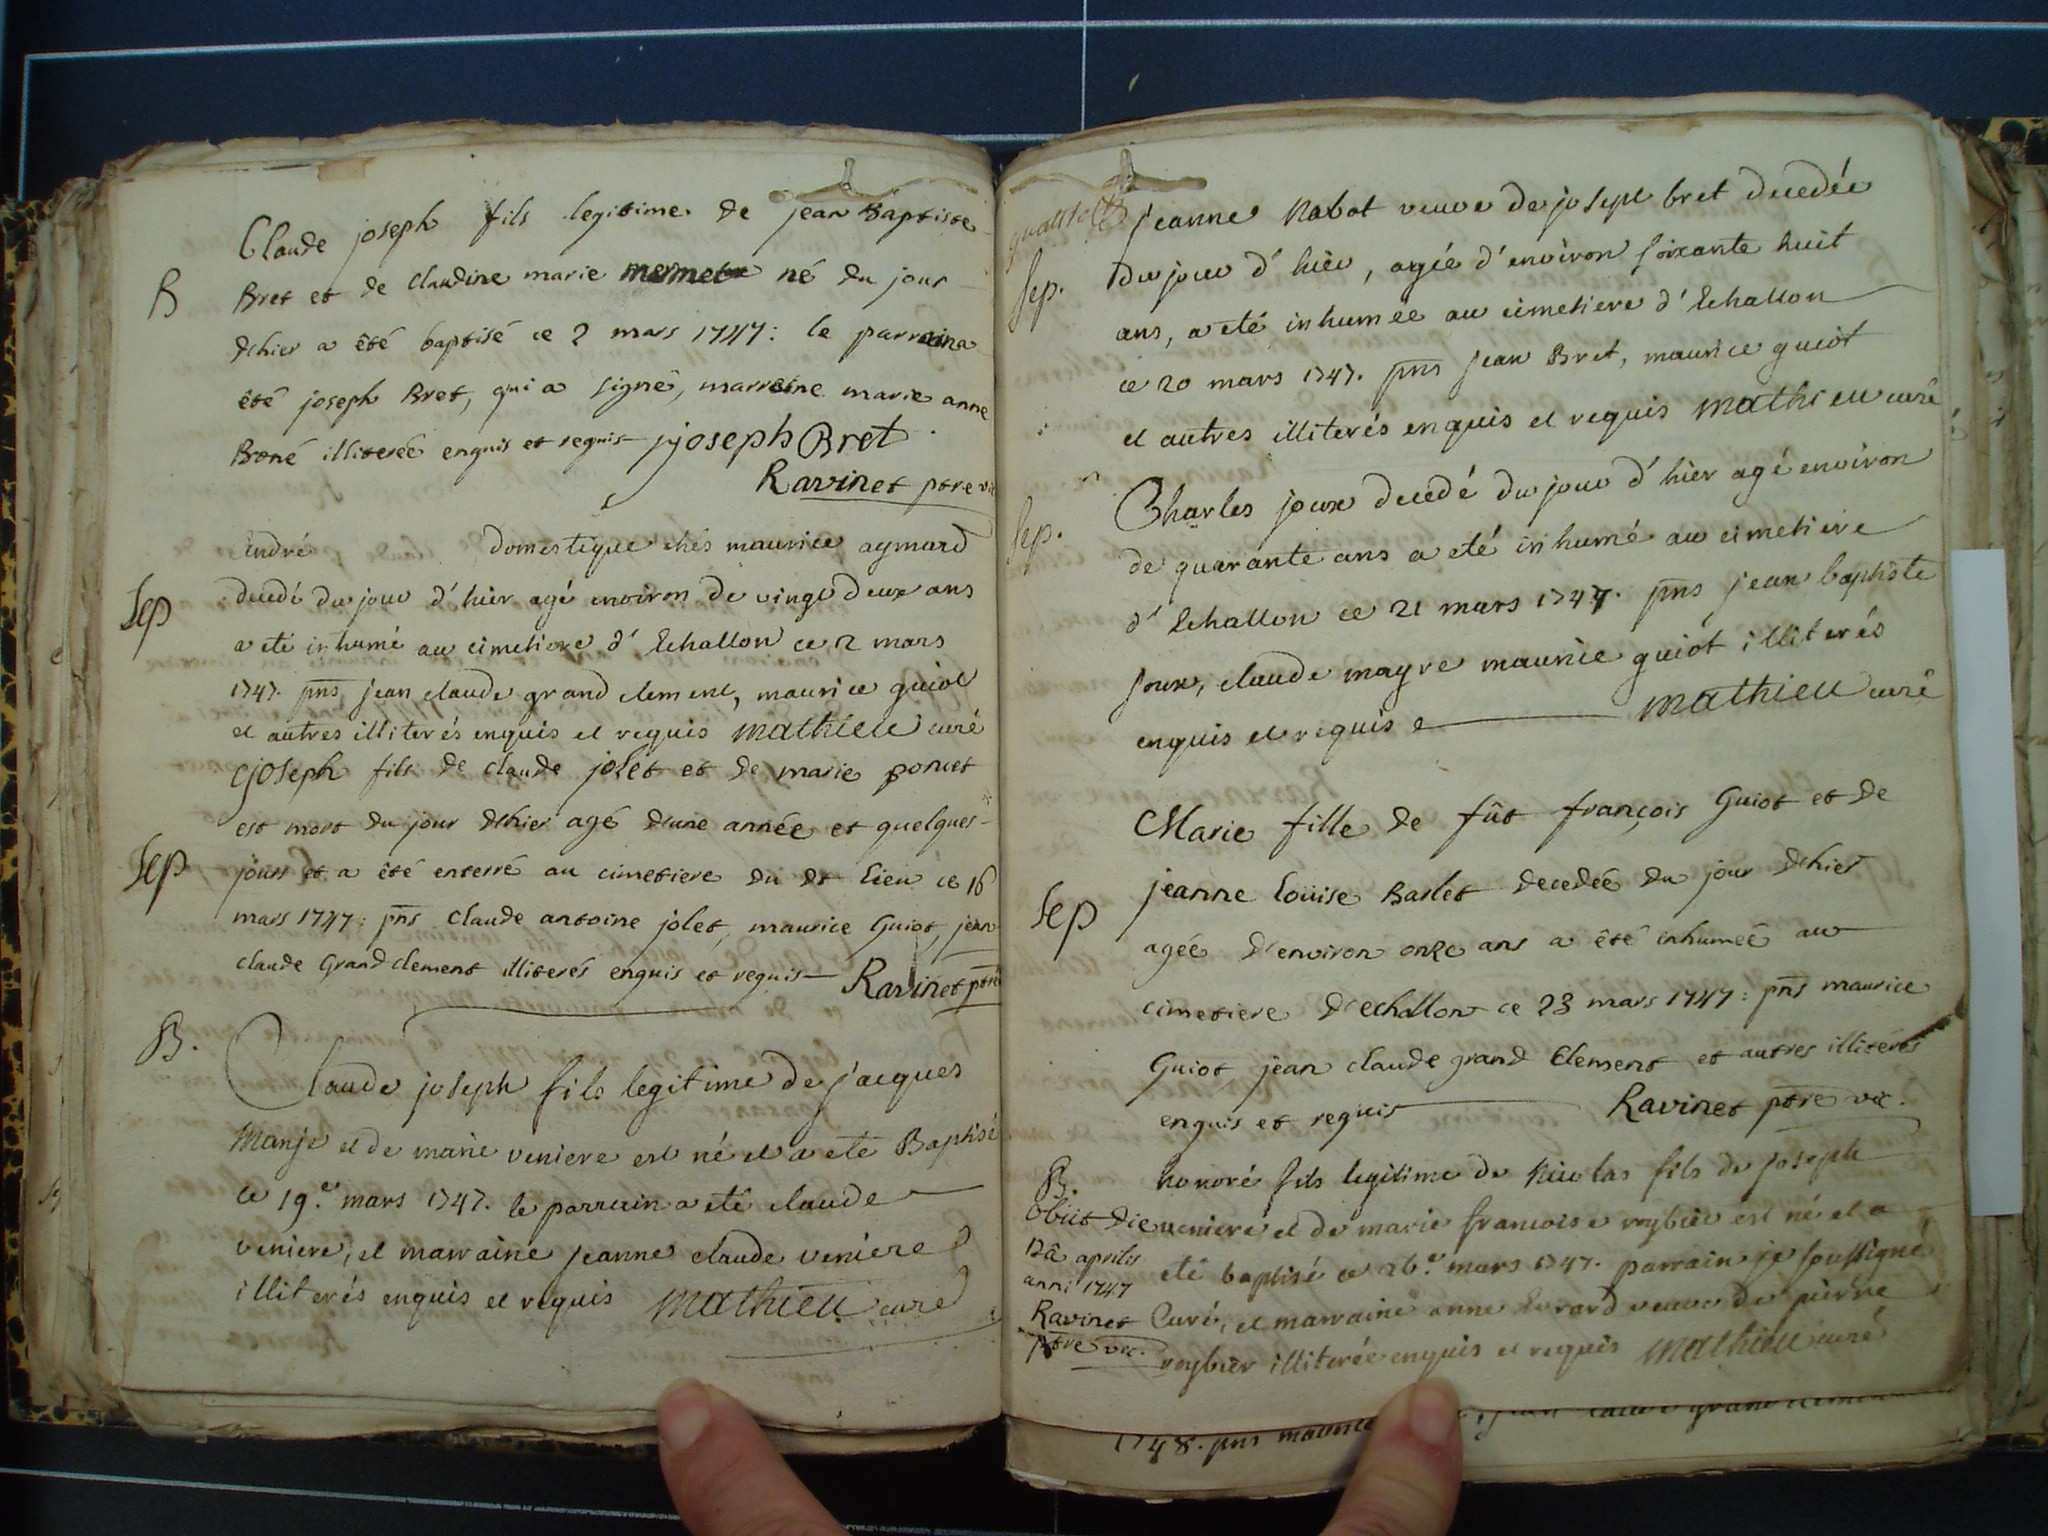 Claude joseph fils legitime de jean Baptiste
B
Bret et de claudine marie mermet né du jour
dhier a êté baptisé ce 2 mars 1747: le parrain a
êté joseph Bret, qui a signé, marreine marie anne
Boné illiterée enquis et requis joseph Bret
Ravinet ptre vic
andré domestique chés maurice aymard
Sep
decedé du jour d'hier agé environ de vingt deux ans
a eté inhumé au cimetiere d'Echallon ce 2 mars
1747. pns jean claude grand clement, maurice guiot
et autres illiterés enquis et requis Mathieu curé
joseph fils de claude jolet et de marie poncet
est mort du jour dhier agé d'une année et quelques
Sep
jours et a êté enterré au cimetiere du dt lieu ce 16
mars 1747: pns claude antoine jolet, maurice Guiot, jean
claude Grand clement illiterés enquis et requis Ravinet ptre
B.
Claude joseph fils legitime de jacques
Manje et de marie veniere est né et a eté Baptisé
ce 19.e mars 1747. le parrain a eté claude
veniere, et marraine jeanne claude veniere
illiterés enquis et requis Mathieu curé
jeanne Nabot veuve de joseph bret decedée
Sep.
du jour d'hier, agée d'environ soixante huit
ans, a eté inhumée au cimetiere d'Echallon
ce 20 mars 1747. pns jean Bret, maurice guiot
et autres illiterés enquis et requis Mathieu curé
Charles joux decedé du jour d'hier agé environ
Sep.
de quarante ans a eté inhumé au cimetiere
d'Echallon ce 21 mars 1747. pns jean baptiste
joux, claude mayre maurice guiot illiterés
enquis et requis Mathieu curé
Marie fille de fût françois Guiot et de
Sep
jeanne loüise Barlet decedée du jour dhier
agée d'environ onze ans a êté inhumeé au
cimetiere d'echallon ce 23 mars 1747: pns maurice
Guiot jean claude grand Clement et autres illiterés
enquis et requis Ravinet ptre vic.
B.
honoré fils legitime de Nicolas fils de joseph
veniere et de marie francoise reybier est né et a
eté baptisé ce 26.e mars 1747. parrain je soussigné
Curé, et marraine anne Evrard veuve de pierre
reybier illiterée enquis et requis Mathieu curé
obiit die
12â aprilis
anni 1747
Ravinet
ptre vic.
1748. pns maurice jean claude grand clement